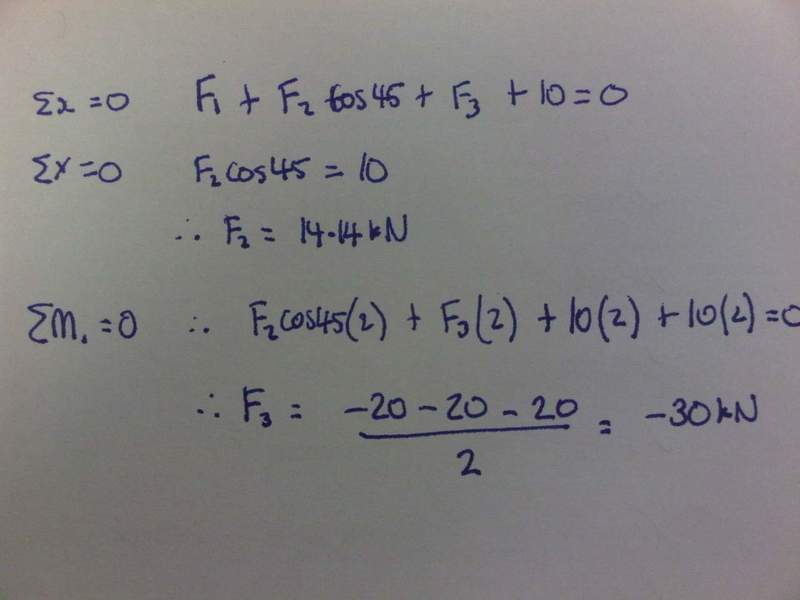 Σx=0 F₁ + F₂ cos45 + F₃ + 10 = 0
Σx=0 F₂cos45 = 10
∴ F₂ = 14.14kN
ΣM₁=0 ∴ F₂cos45(2) + F₃(2) + 10(2) + 10(2) = 0
∴ F₃ = -20 - 20 - 20 = -30kN
2